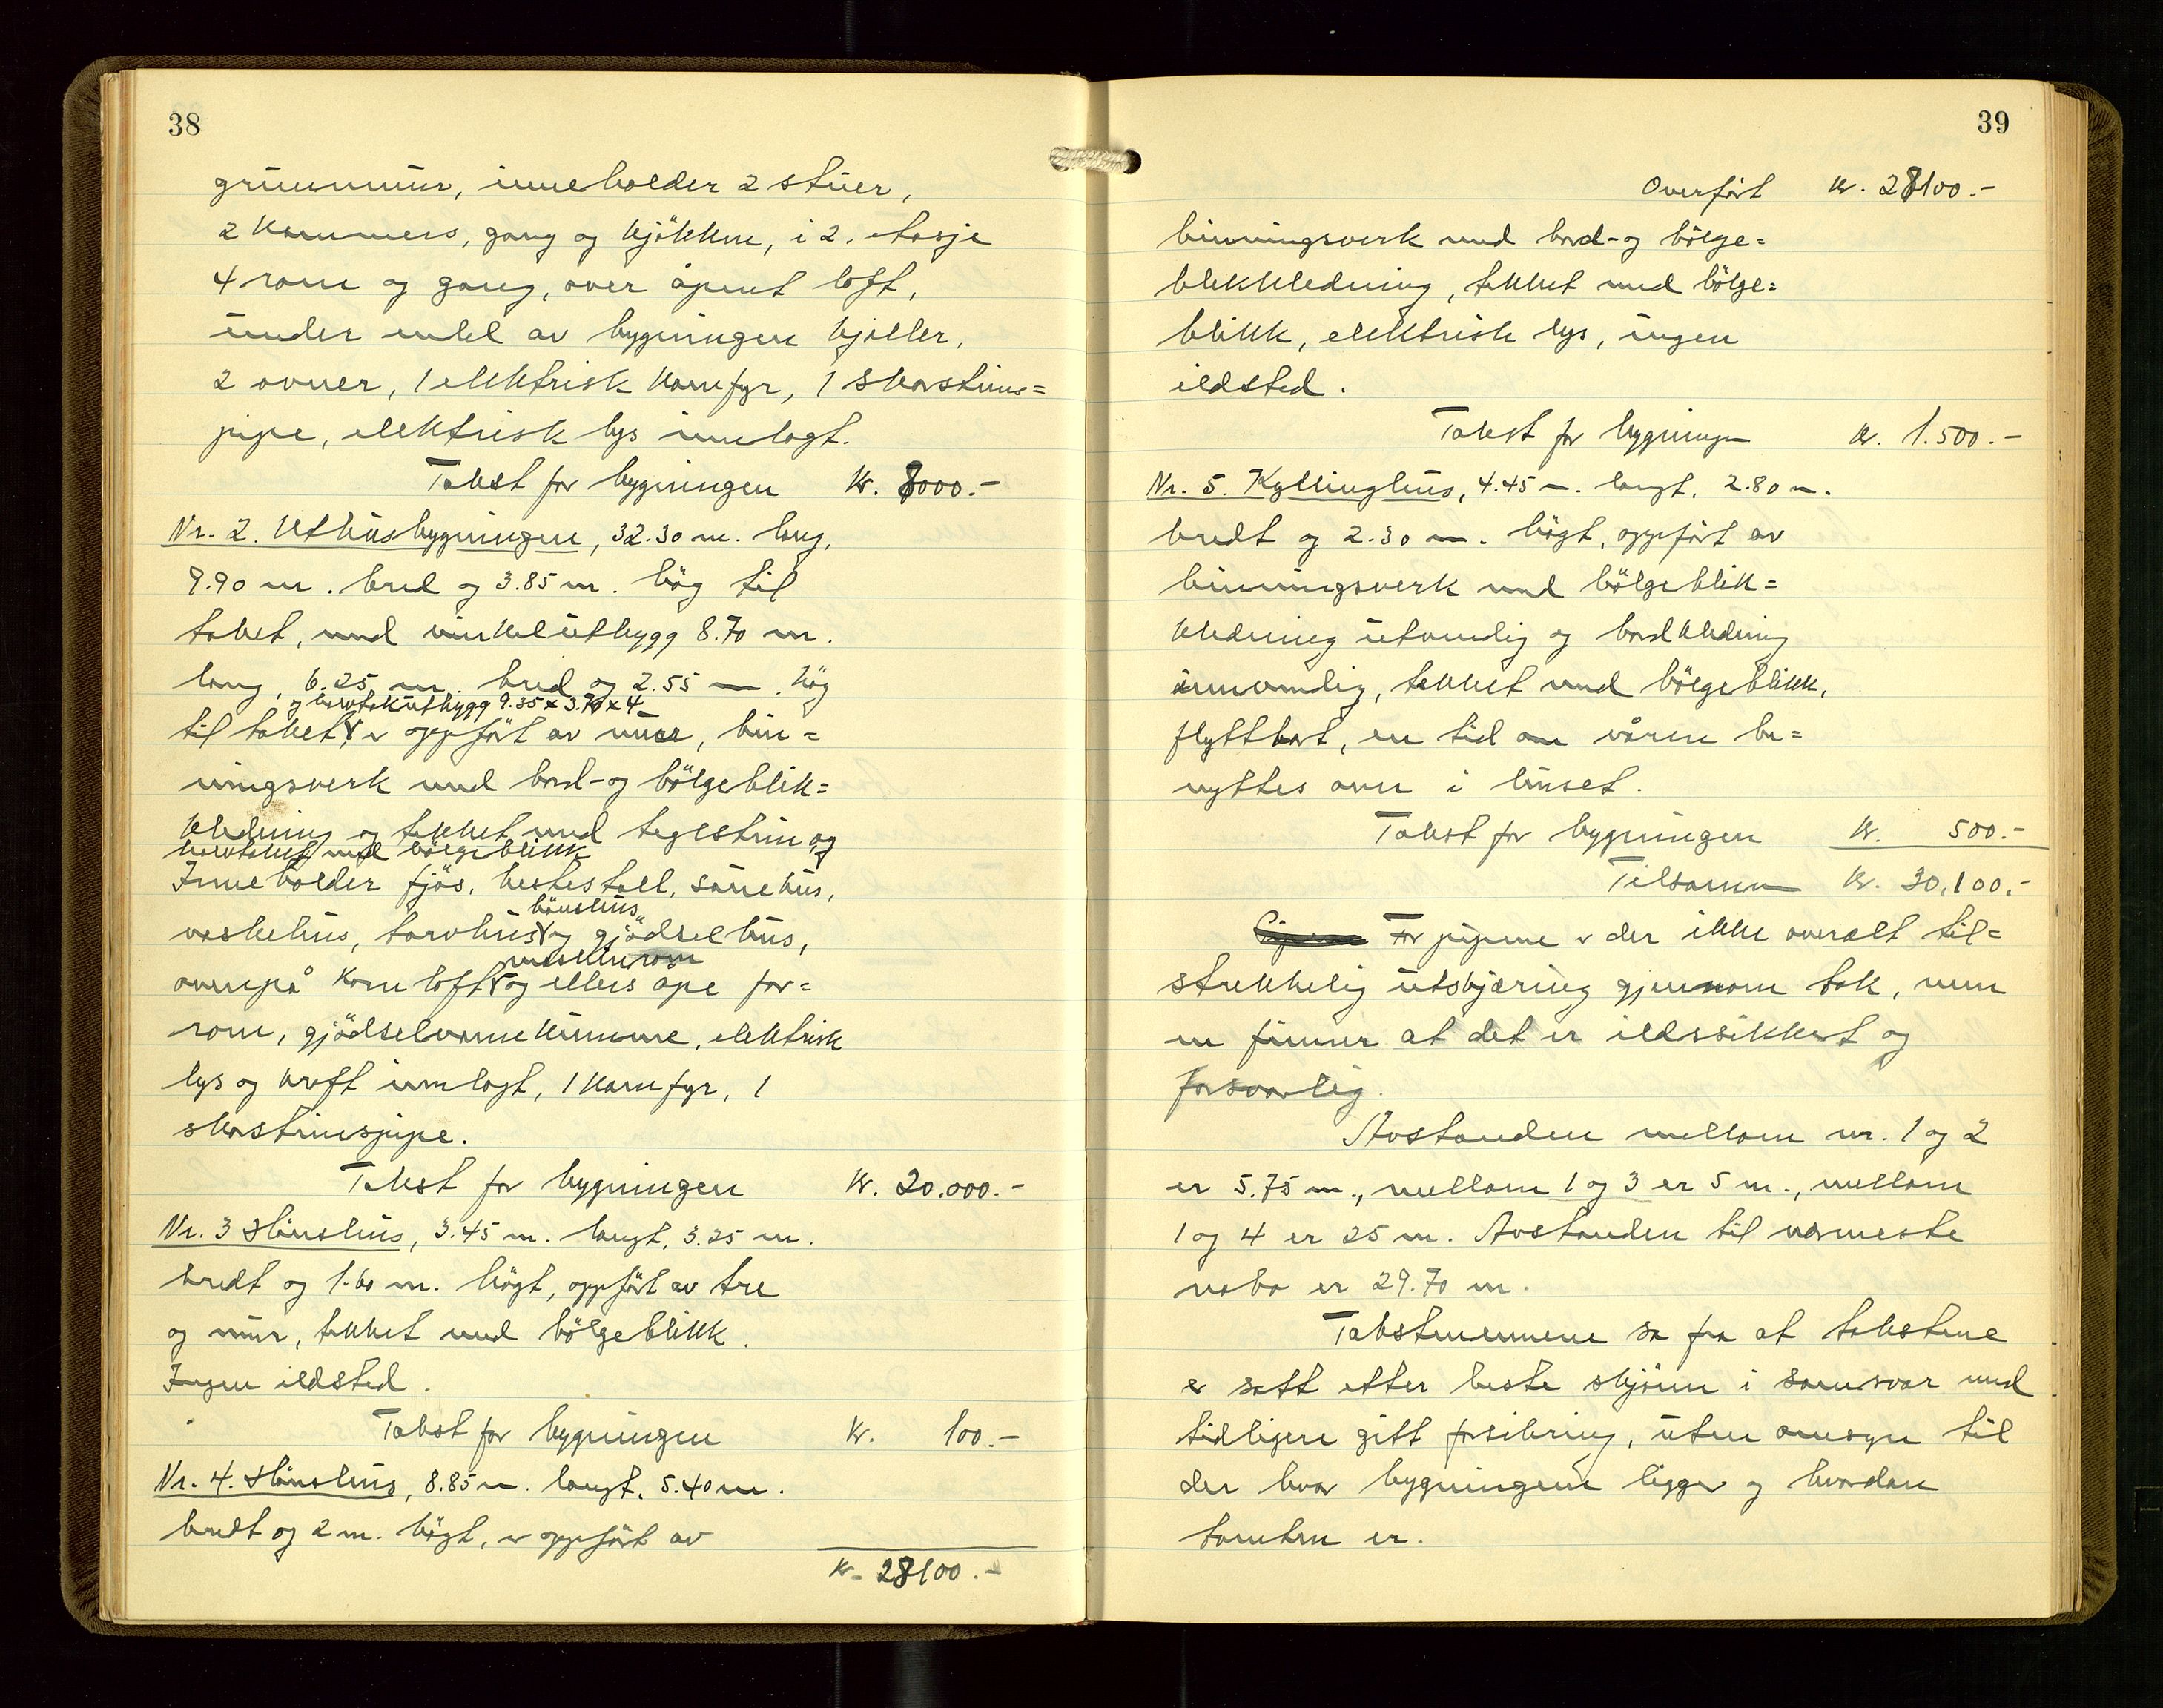 38
grunnmur, inneholder 2 stuer,
2 kammers, gang og kjökken, i 2. etasje
4 rom og gang, over åpent loft,
under endel av bygningen kjeller,
2 ovner, 1 elektrisk komfyr, 1 skorstens=
pipe, elektrisk lys innlagt.
Takst for bygningen Kr. 8000.-
Nr. 2. Uthusbygningen, 32.30 m. lang,
9.90 m. bred og 3.85 m. hög til
taket, med vinkelutbygg 8.70 m.
lang, 6.25 m. bred og 2.55 m. hög
og halvtakutbygg 9.35 x 3.70 x 4
til taket, er oppfört av mur, bin=
ningsverk med bord- og bölgeblik=
kledning og tekket med teglstein og
halvtaket med bölgeblikk
Inneholder fjös, hestestall, sauehus,
hönsehus
vaskehus, torvhus og gjödselhus,
maskinrom
ovenpå kornloft og ellers ope for=
rom, gjödselvannkumme, elektrisk
lys og kraft innlagt, 1 komfyr, 1
skorstenspipe.
Takst for bygningen Kr. 20.000.-
Nr. 3 Hönsehus, 3.45 m. langt, 3.25 m.
bredt og 1.60 m. högt, oppfört av tre
og mur, tekket med bölgeblikk.
Ingen ildsted.
Takst for bygningen Kr. 100.-
Nr. 4. Hönsehus, 8.85 m. langt, 5.40 m.
bredt og 2 m. högt, er oppfört av
Kr. 28100.-
39
Overfört Kr. 28100.-
binningsverk med bord- og bölge=
blekkledning, tekket med bölge=
blikk, elektrisk lys, ingen
ildsted.
Takst for bygningen Kr. 1.500.-
Nr. 5. Kyllinghus, 4.45 m. langt, 2.80 m.
bredt og 2.30 m. högt, oppfört av
binningsverk med bölgeblik=
kledning utvendig og bordkledning
innvendig, tekket med bölgeblikk,
flyttbart, en tid om våren be=
nyttes ovn i huset.
Takst for bygningen Kr. 500.-
Tilsammen Kr. 30,100.-
For pipene er der ikke overalt til=
strekkelig utskjæring gjennom tak, men
en finner at det er ildssikkert og
forsvarlig.
Avstanden mellom nr. 1 og 2
er 5.75 m., mellom 1 og 3 er 5 m., mellom
1 og 4 er 25 m. Avstanden til nærmeste
nabo er 29.70 m.
Takstmennene sa fra at takstene
er satt etter beste skjönn i samsvar med
tidligere gitt forsikring, uten omsyn til
der hvor bygningene ligger og hvordan
tomten er.